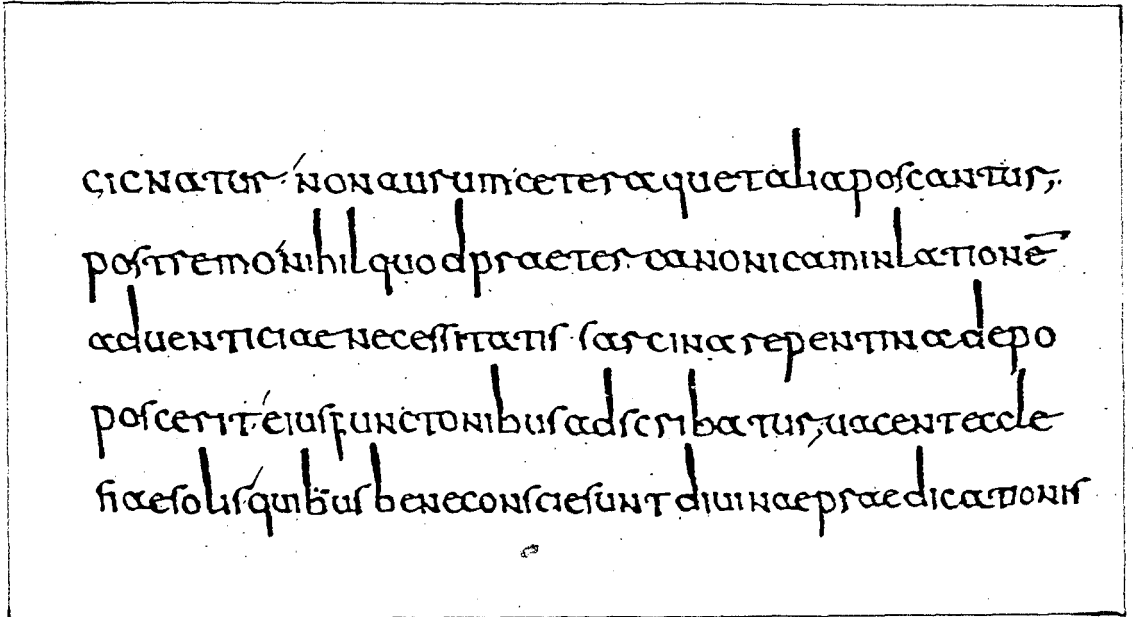 gignatur· non aurum ceteraque talia poscantur;
postremo nihil quod praeter canonicam inlationē
aduenticiae necessitatis · sarcina repentina depo
poscerit· eius functonibus adscribatur; uacent eccle
siae solis quibus bene consciae sunt diuinae praedicationis